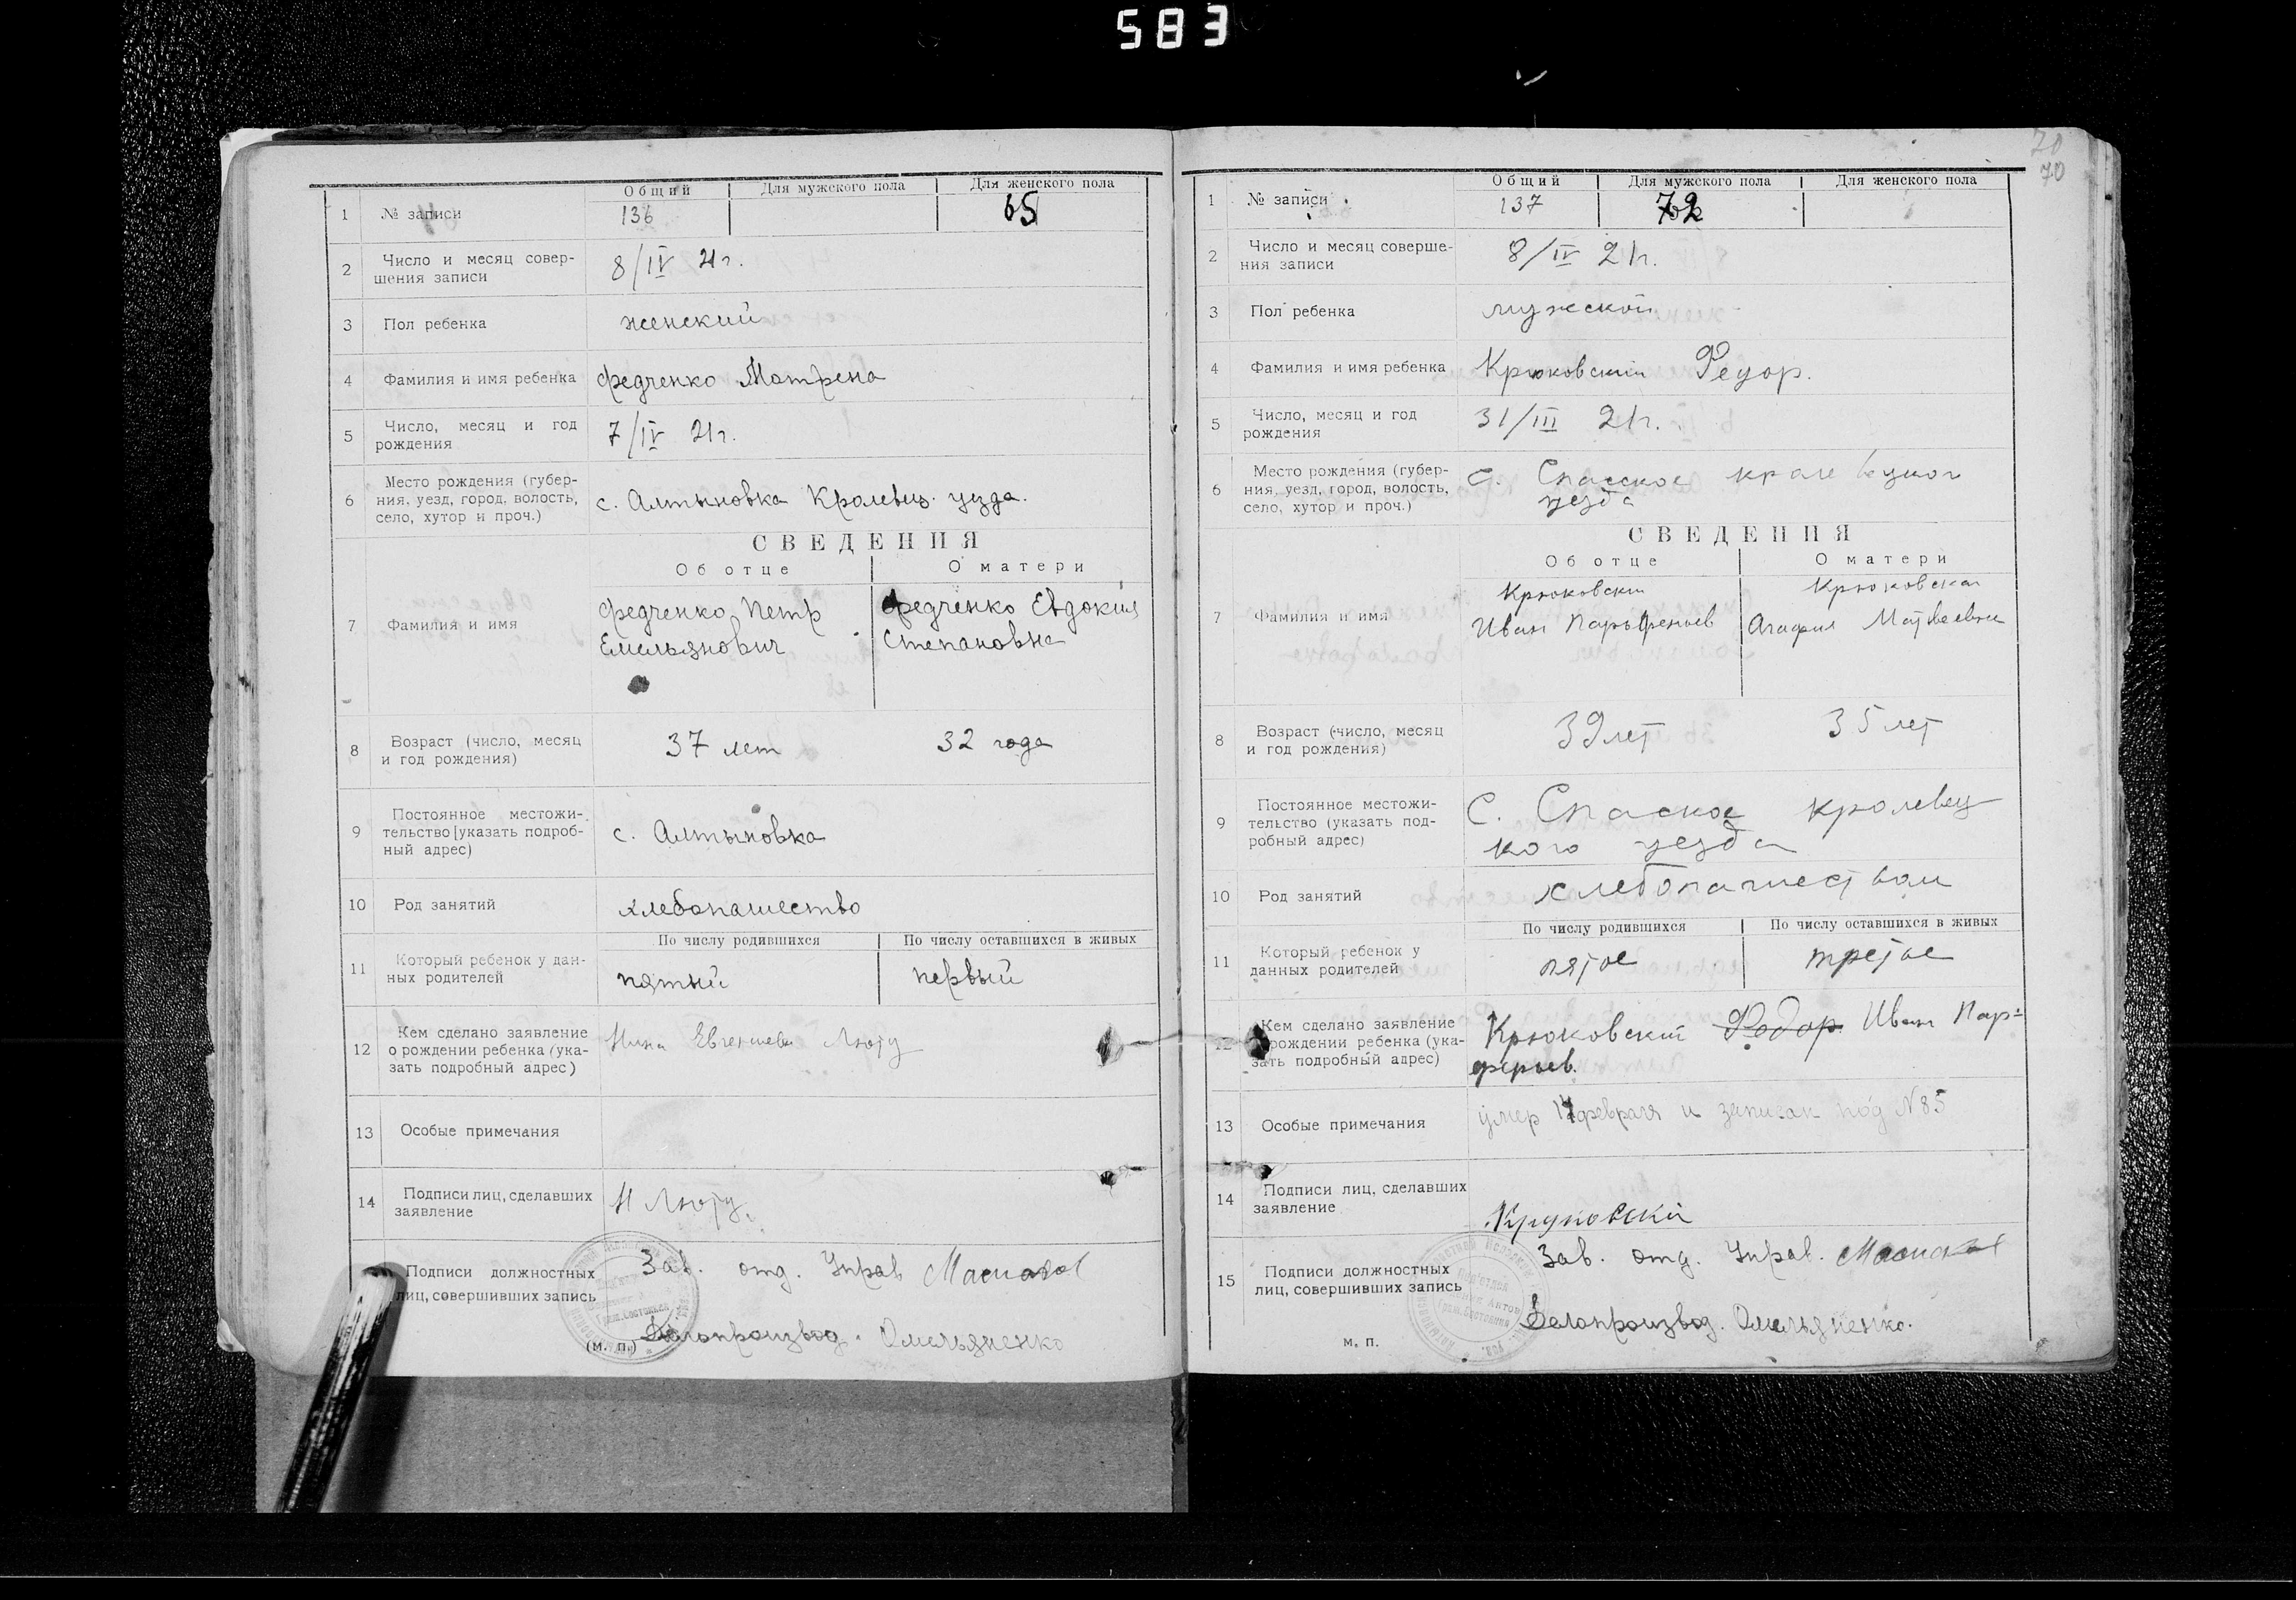 583
Общий Для мужского пола Для женского пола
1 № записи 136 65
2 Число и месяц совер-
шения записи 8/IV 21г.
3 Пол ребенка женский
4 Фамилия и имя ребенка Федченко Матрена
5 Число, месяц и год
рождения 7/IV 21г.
6 Место рождения (губер-
ния, уезд, город, волость,
село, хутор и проч.) с. Алтыновка Кролевец. уезда.
СВЕДЕНИЯ
Об отце О матери
7 Фамилия и имя Федченко Петр Федченко Евдокия
Емельянович Степановна
8 Возраст (число, месяц
и год рождения) 37 лет 32 года
9 Постоянное местожи-
тельство [указать подроб-
ный адрес) с. Алтыновка
10 Род занятий хлебопашество
По числу родившихся По числу оставшихся в живых
11 Который ребенок у дан-
ных родителей пятый первый
12 Кем сделано заявление
о рождении ребенка (ука-
зать подробный адрес) Нина Евгениева Люту
13 Особые примечания
14 Подписи лиц, сделавших
заявление Н Люту.
Подписи должностных
лиц, совершивших запись Зав. отд. Управ
(м. п.) Делопроизвод. Омельяненко
70
70
Общий Для мужского пола Для женского пола
1 № записи 137 72
2 Число и месяц соверше-
ния записи 8/IV 21г.
3 Пол ребенка мужской
4 Фамилия и имя ребенка Крюковский Федор.
5 Число, месяц и год
рождения 31/III 21г.
6 Место рождения (губер-
ния, уезд, город, волость,
село, хутор и проч.) с. Спасское кролевецког
уезда
СВЕДЕНИЯ
Об отце О матери
Крюковский Крюковская
7 Фамилия и имя Иван Парфеньев Агафия Матвеевна
8 Возраст (число, месяц
и год рождения) 39 лет 35 лет
9 Постоянное местожи-
тельство (указать под-
робный адрес) С. Спаское кролевец
кого уезда
10 Род занятий хлебопашеством
По числу родившихся По числу оставшихся в живых
11 Который ребенок у
данных родителей пятое третое
12 Кем сделано заявление
о рождении ребенка (ука-
зать подробный адрес) Крюковский Федор Иван Пар-
феньев.
13 Особые примечания умер 17 февраля и записан под №85
14 Подписи лиц, сделавших
заявление Круковскій
15 Подписи должностных
лиц, совершивших запись Зав. отд. Управ.
м. п. Делопроизвод. Омельяненко.